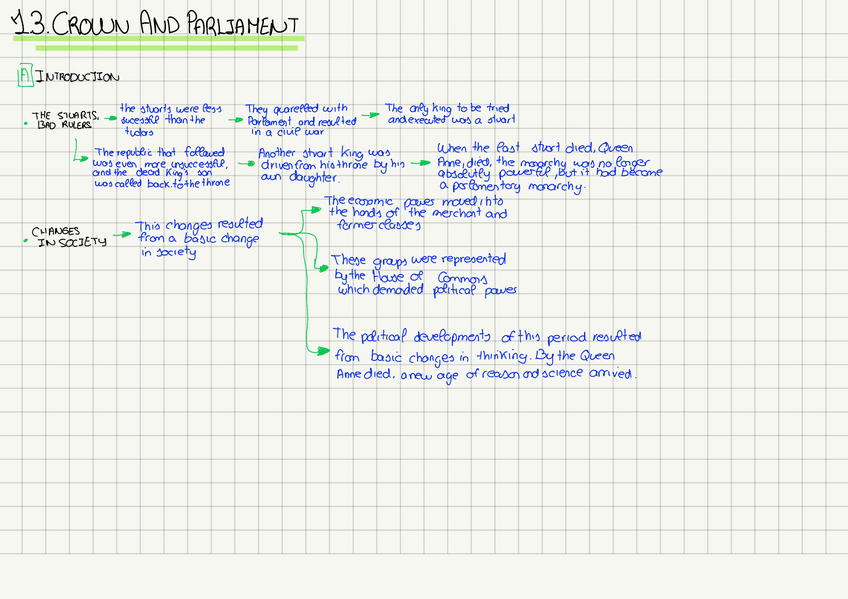 13. CROWN AND PARLIAMENT
A INTRODUCTION
• THE STUARTS,
BAD RULERS
the stuarts were less
sucessful than the
tudors
They quarelled with
Parlament and resulted
in a civil war
The only king to be tried
and executed was a stuart
The republic that followed
was even more unsuccessful,
and the dead King's son
was called back to the throne
Another stuart King was
driven from his throne by his
own daughter.
When the last stuart died, Queen
Anne, died, the monarchy was no longer
absolutly powerful, but it had become
a parlamentary monarchy.
• CHANGES
IN SOCIETY
This changes resulted
from a basic change
in society
The economic power moved into
the hands of the merchant and
farmer classes
These groups were represented
by the House of Commons
which demanded political power
The political developments of this period resulted
from basic changes in thinking. By the Queen
Anne died, a new age of reason and science arrived.